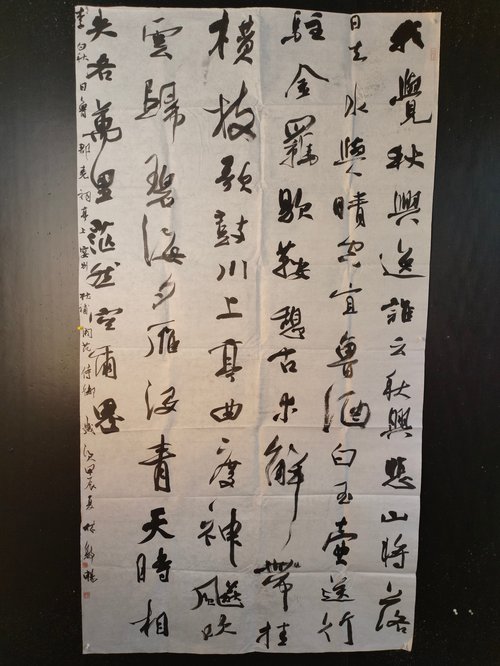 我覺秋興逸誰云秋興悲山將落
日去水與晴空宜魯酒白玉壺送行
駐金羈歇鞍憩古木解帶挂
橫枝歌鼓川上亭曲度神飇吹
雲歸碧海夕雁沒青天時相
失各萬里茫然空爾思
李白秋日魯郡堯祠亭上宴別杜補闕范侍御歲次甲辰夏